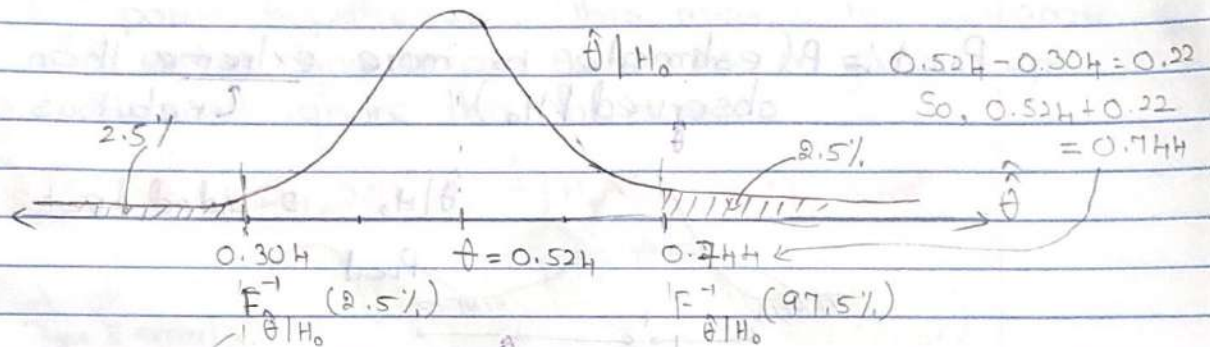 θ̂|H₀ 0.524-0.304=0.22
So, 0.524+0.22
= 0.744
2.5%
θ̂
2.5%
θ̂
0.304 θ = 0.524 0.744
F⁻¹ θ̂|H₀ (2.5%) F⁻¹ θ̂|H₀ (97.5%)